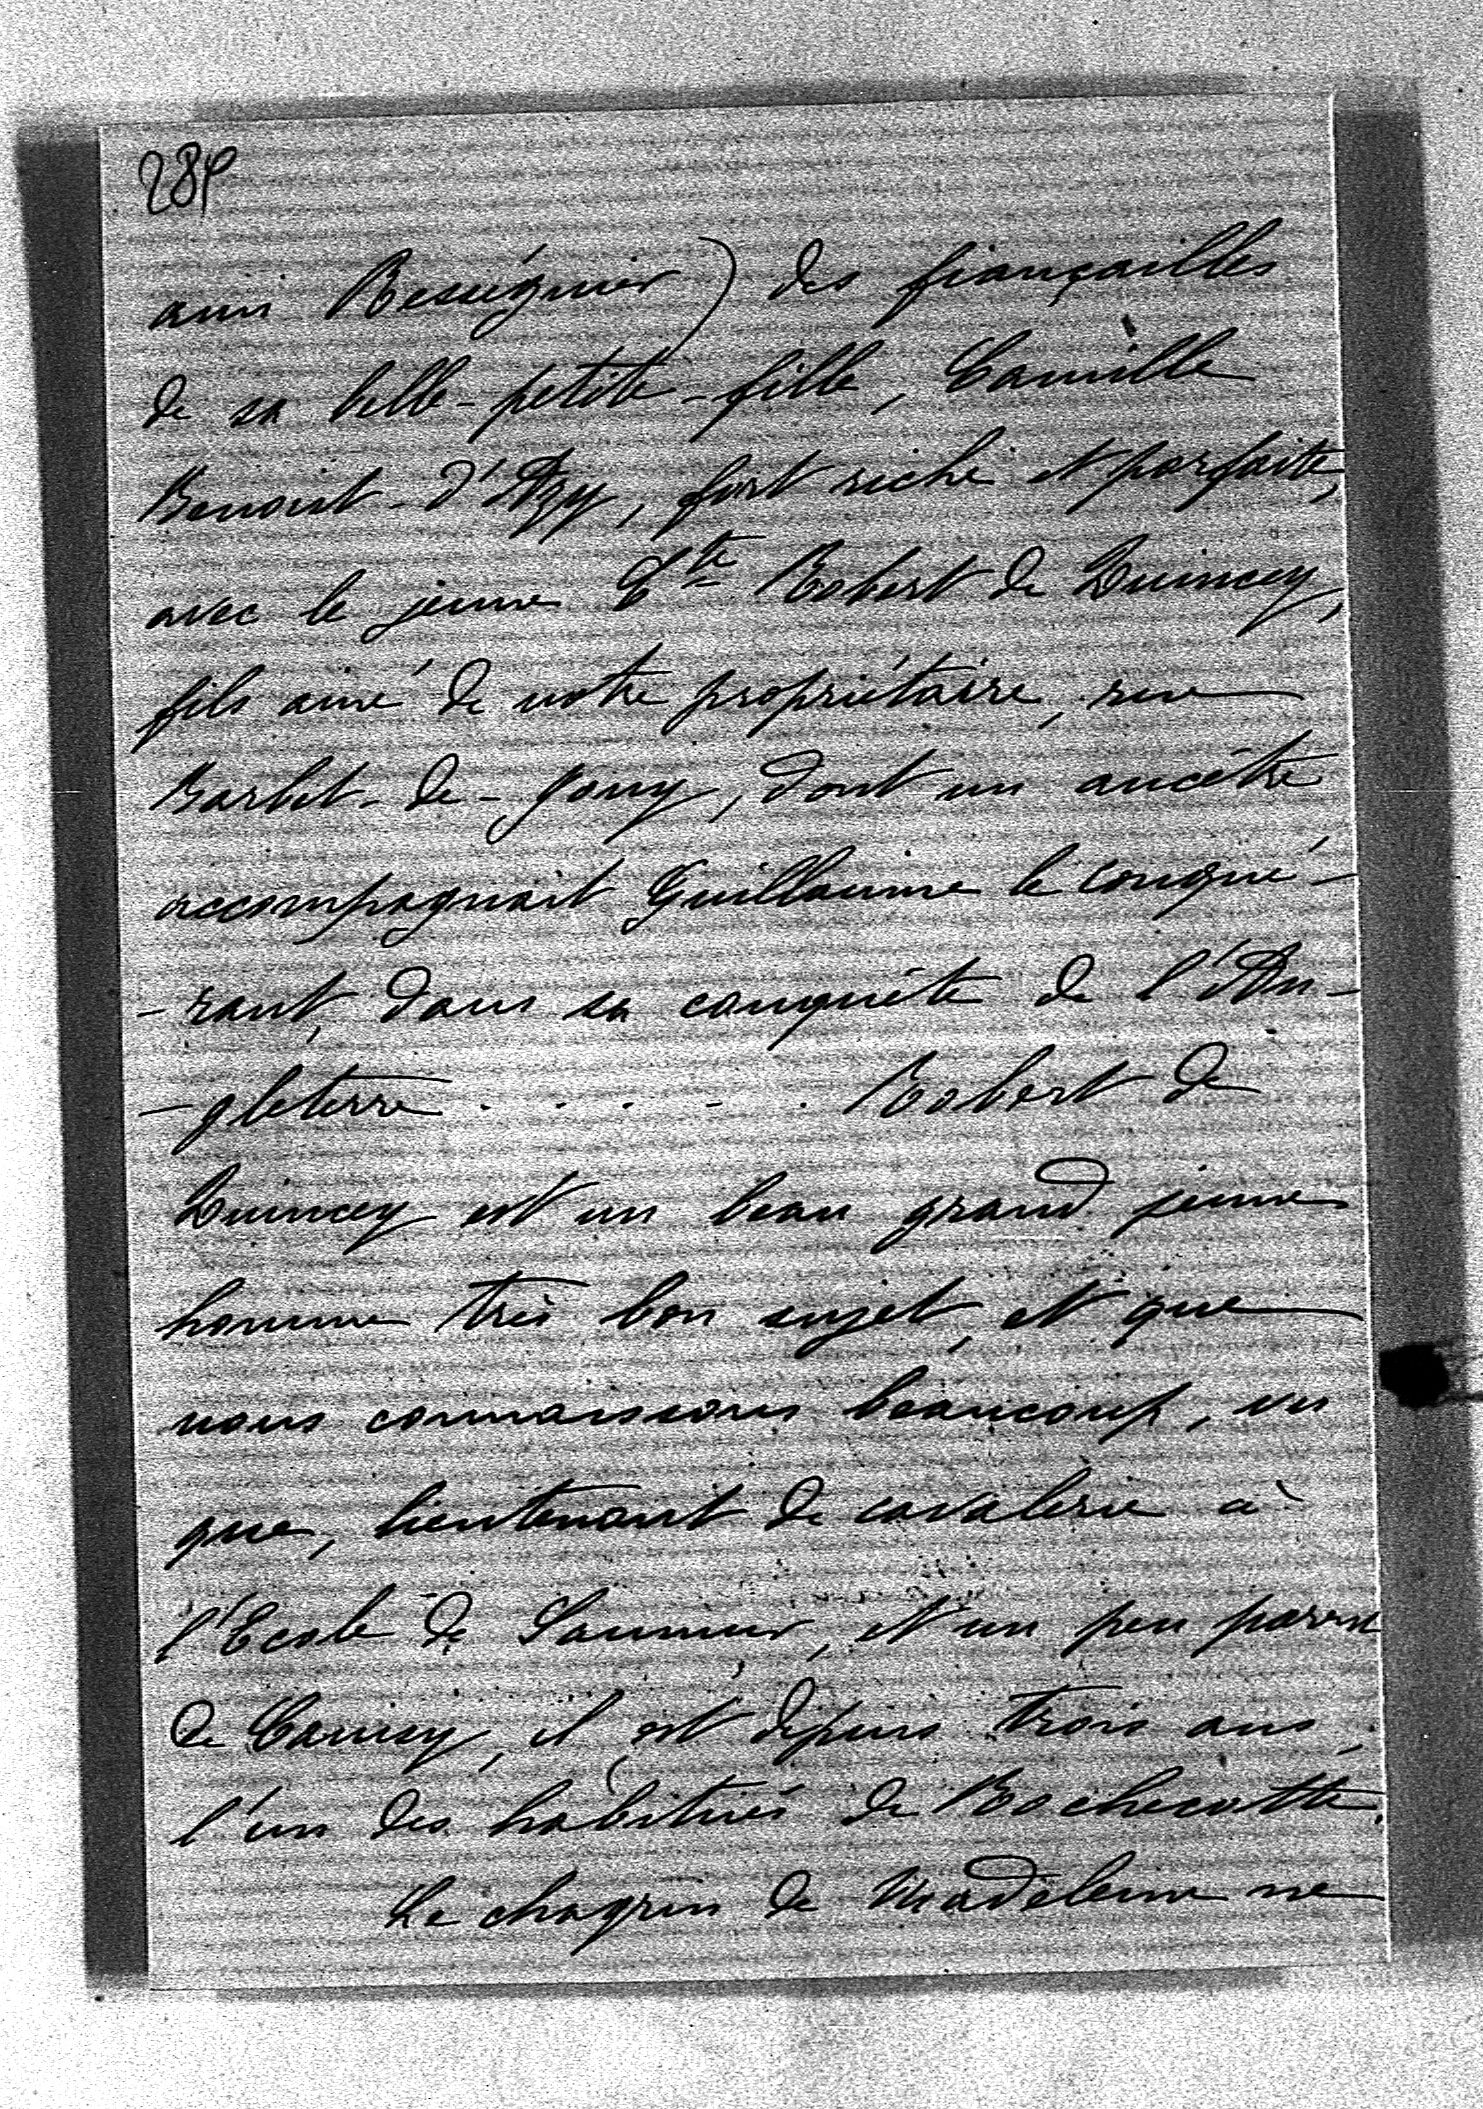 289
ami Rességuier) des fiançailles
de sa belle-petite-fille, Camille
Benoist-d'Azy, fort riche et parfaite,
avec le jeune Cte Robert de Quincey,
fils ainé de notre propriétaire, rue
Barbet-de-Jouy, dont un ancêtre
accompagnait Guillaume le conqué-
-rant, dans sa conquête de l'An-
-gleterre . . . . . Robert de
Quincey est un beau grand jeune
homme très bon sujet, et que
nous connaissons beaucoup, vu
que, lieutenant de cavalerie à
l'Ecole de Saumur, et un peu parent
de, il est depuis trois ans,
l'un des habitués de Rochecotte.
Le chagrin de Madeleine ne